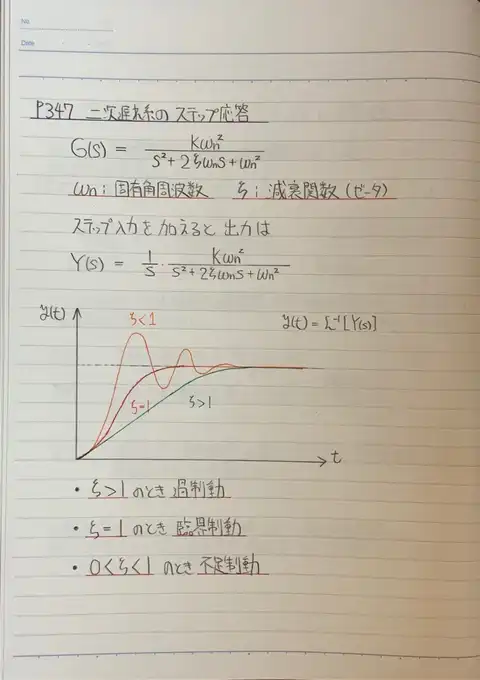 No.
Date
P347 二次遅れ系の ステップ応答
G(s) = Kωn² / s²+2ζωns+ωn²
ωn ; 固有角周波数 ζ ; 減衰関数 (ゼータ)
ステップ入力を加えると 出力は
Y(s) = 1/s · Kωn² / s²+2ζωns+ωn²
y(t)
ζ<1
y(t) = L⁻¹[Y(s)]
ζ=1
ζ>1
t
・ ζ>1 のとき 過制動
・ ζ=1 のとき 臨界制動
・ 0<ζ<1 のとき 不足制動